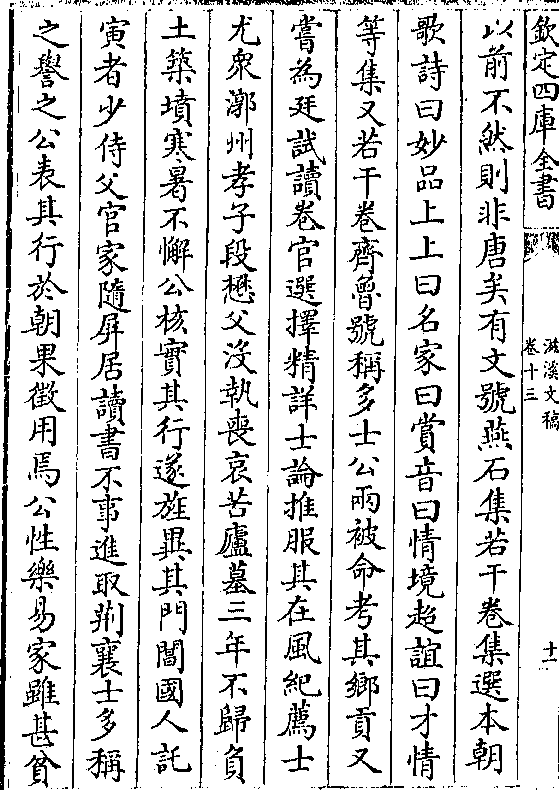 欽定四庫全書
滋溪文稿
卷十三
十一
以前不然則非唐矣有文號燕石集若干卷集選本朝
歌詩曰妙品上上曰名家曰賞音曰情境超誼曰才情
等集又若干卷齊魯號稱多士公兩被命考其鄉貢又
嘗為廷試讀卷官選擇精詳士論推服其在風紀薦士
尤衆漷州孝子段懋父沒執喪哀苦廬墓三年不歸負
土築墳寒暑不懈公核實其行遂旌異其門閭國人託
寅者少侍父官家隨屏居讀書不事進取荆襄士多稱
之譽之公表其行於朝果徵用焉公性樂易家雖甚貧